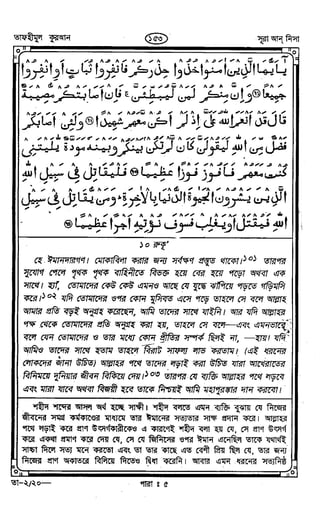 তাফহীমুল কুরআন
১৫৩
সূরা আন্ নিসা
يٰۤاَيُّهَا الَّذِيْنَ اٰمَنُوْا خُذُوْا حِذْرَكُمْ فَانْفِرُوْا ثُبَاتٍ اَوِ انْفِرُوْا
جَمِيْعًا ۝ وَاِنَّ مِنْكُمْ لَمَنْ لَّيُبَطِّئَنَّ ۚ فَاِنْ اَصَابَتْكُمْ مُّصِيْبَةٌ
قَالَ قَدْ اَنْعَمَ اللّٰهُ عَلَيَّ اِذْ لَمْ اَكُنْ مَّعَهُمْ شَهِيْدًا ۝ وَلَئِنْ اَصَابَكُمْ
فَضْلٌ مِّنَ اللّٰهِ لَيَقُوْلَنَّ كَاَنْ لَّمْ تَكُنْۢ بَيْنَكُمْ وَبَيْنَهٗ مَوَدَّةٌ يّٰلَيْتَنِيْ
كُنْتُ مَعَهُمْ فَاَفُوْزَ فَوْزًا عَظِيْمًا ۝ فَلْيُقَاتِلْ فِيْ سَبِيْلِ اللّٰهِ
الَّذِيْنَ يَشْرُوْنَ الْحَيٰوةَ الدُّنْيَا بِالْاٰخِرَةِ ؕ وَمَنْ يُّقَاتِلْ فِيْ سَبِيْلِ
اللّٰهِ فَيُقْتَلْ اَوْ يَغْلِبْ فَسَوْفَ نُؤْتِيْهِ اَجْرًا عَظِيْمًا ۝
১০ রুকূ'
হে ঈমানদারগণ! মোকাবিলা করার জন্য সর্বক্ষণ প্রস্তুত থাকো।১০১ তারপর
সুযোগ পেলে পৃথক পৃথক বাহিনীতে বিভক্ত হয়ে বের হয়ে পড়ো অথবা এক
সাথে। হাঁ, তোমাদের কেউ কেউ এমনও আছে যে যুদ্ধে ঝাঁপিয়ে পড়তে গড়িমসি
করে।১০২ যদি তোমাদের ওপর কোন মুসিবত এসে পড়ে তাহলে সে বলে আল্লাহ
আমার প্রতি বড়ই অনুগ্রহ করেছেন, আমি তাদের সাথে যাইনি। আর যদি আল্লাহর
পক্ষ থেকে তোমাদের প্রতি অনুগ্রহ করা হয়, তাহলে সে বলে—এবং এমনভাবে
বলে যেন তোমাদের ও তার মধ্যে কোন প্রীতির সম্পর্ক ছিলই না,—হায়! যদি
আমিও তাদের সাথে হতাম তাহলে বিরাট সাফল্য লাভ করতাম। (এই ধরনের
লোকদের জানা উচিত) আল্লাহর পথে তাদের লড়াই করা উচিত যারা আখেরাতের
বিনিময়ে দুনিয়ার জীবন বিকিয়ে দেয়।১০৩ তারপর যে ব্যক্তি আল্লাহর পথে লড়বে
এবং মারা যাবে অথবা বিজয়ী হবে তাকে নিশ্চয়ই আমি মহাপুরস্কার দান করবো।
শহীদ শব্দের আসল অর্থ হচ্ছে সাক্ষী। শহীদ বলতে এমন ব্যক্তি বুঝায় যে নিজের
জীবনের সমগ্র কর্মকাণ্ডের মাধ্যমে তার ঈমানের সত্যতার সাক্ষ্য প্রদান করে। আল্লাহর
পথে লড়াই করে প্রাণ উৎসর্গকারীকেও এ কারণেই শহীদ বলা হয় যে, সে প্রাণ উৎসর্গ
করে একথা প্রমাণ করে দেয় যে, সে যে জিনিসের ওপর ঈমান এনেছিল তাকে যথার্থই
সাচ্চা দিলে সত্য মনে করতো এবং তা তার কাছে এত বেশী প্রিয় ছিল যে, তার জন্য
নিজের প্রাণ অকাতরে বিলিয়ে দিতেও দ্বিধা করেনি। আবার এমন ধরনের সত্যনিষ্ঠ
তা-২/২০—
পারা ঃ ৫